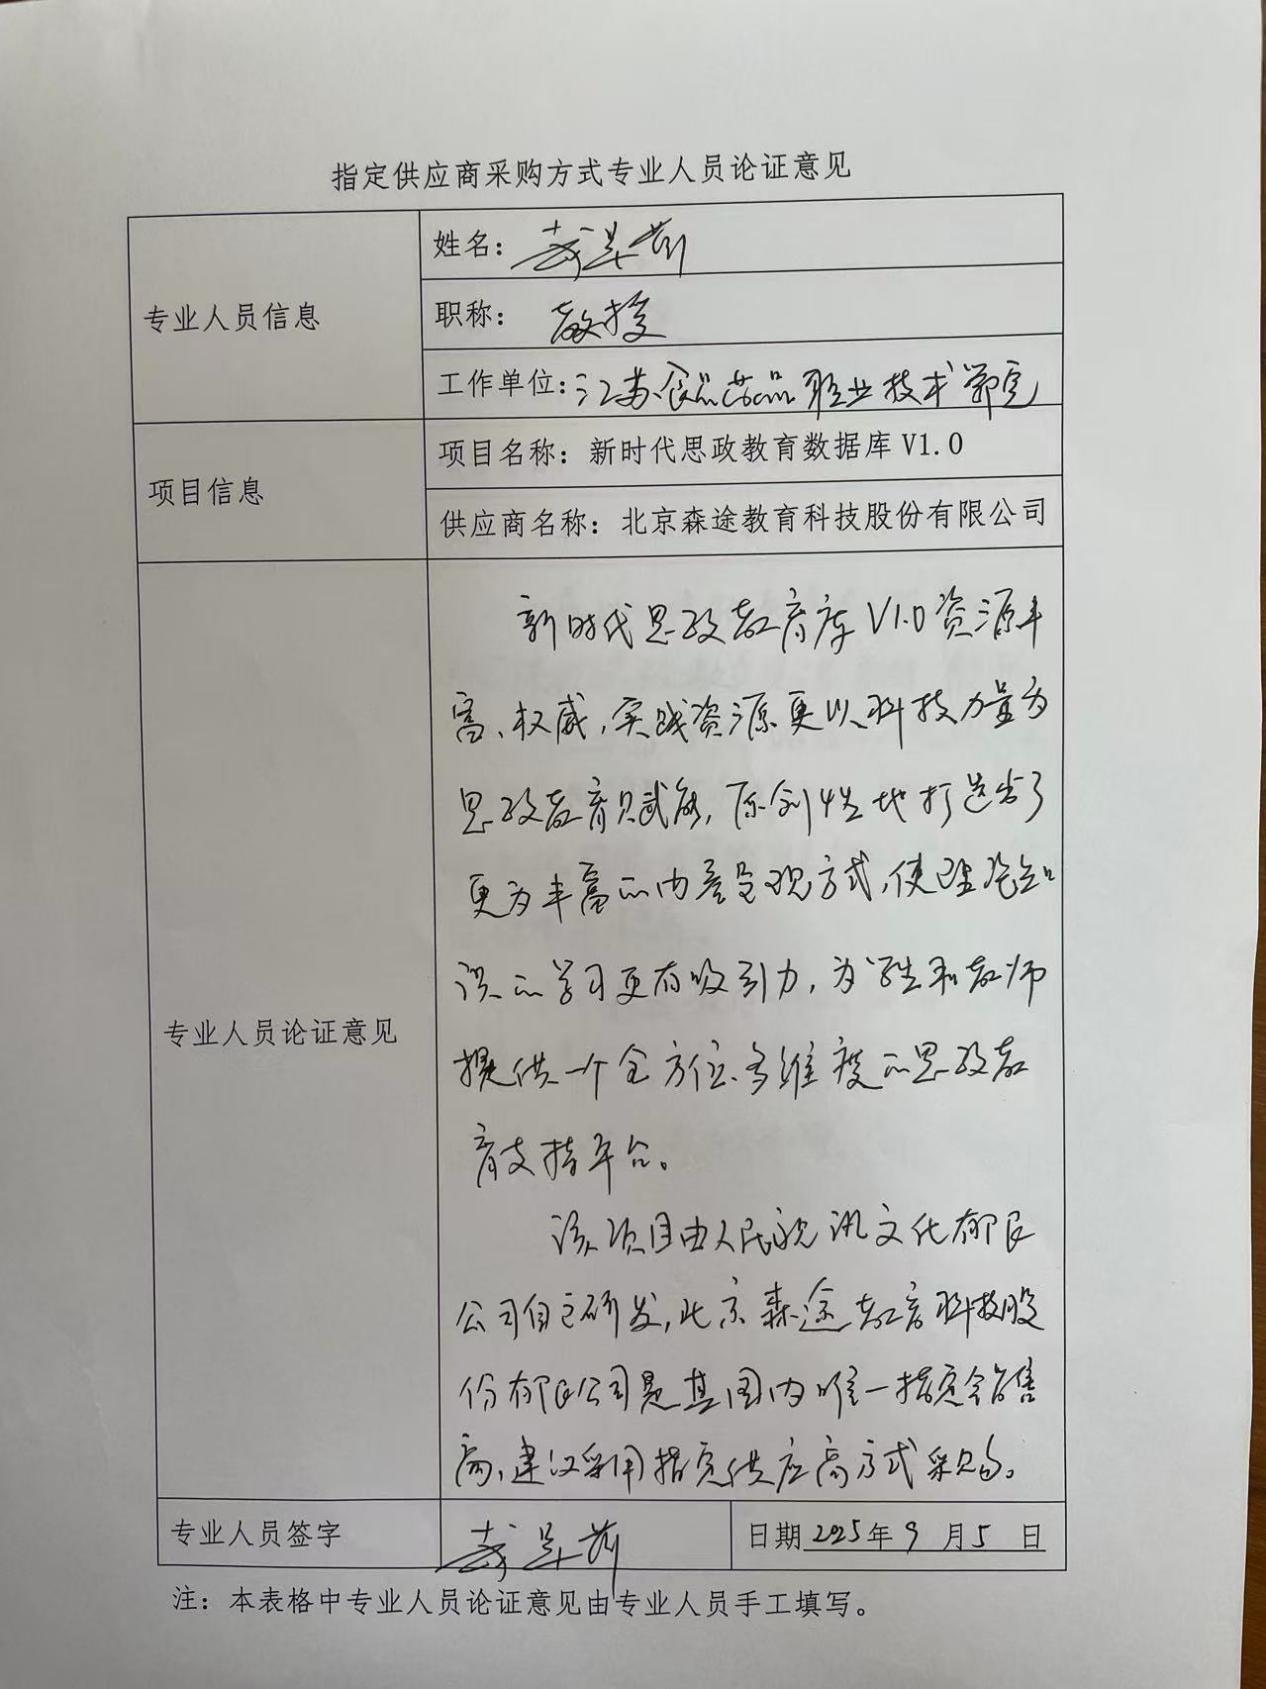 指定供应商采购方式专业人员论证意见
专业人员信息
姓名：
职称： 教授
工作单位：江苏食品药品职业技术学院
项目信息
项目名称：新时代思政教育数据库 V1.0
供应商名称：北京森途教育科技股份有限公司
专业人员论证意见
新时代思政教育库V1.0资源丰
富、权威，实践资源更以科技力量为
思政教育赋能，原创性地打造出了
更为丰富的内容呈现方式，使理论知
识的学习更有吸引力，为学生和教师
提供一个全方位、多维度的思政教
育支持平台。
该项目由人民视讯文化有限
公司自主研发，北京森途教育科技股
份有限公司是其国内唯一指定销售
商，建议采用指定供应商方式采购。
专业人员签字
日期 2025年 9 月 5 日
注：本表格中专业人员论证意见由专业人员手工填写。